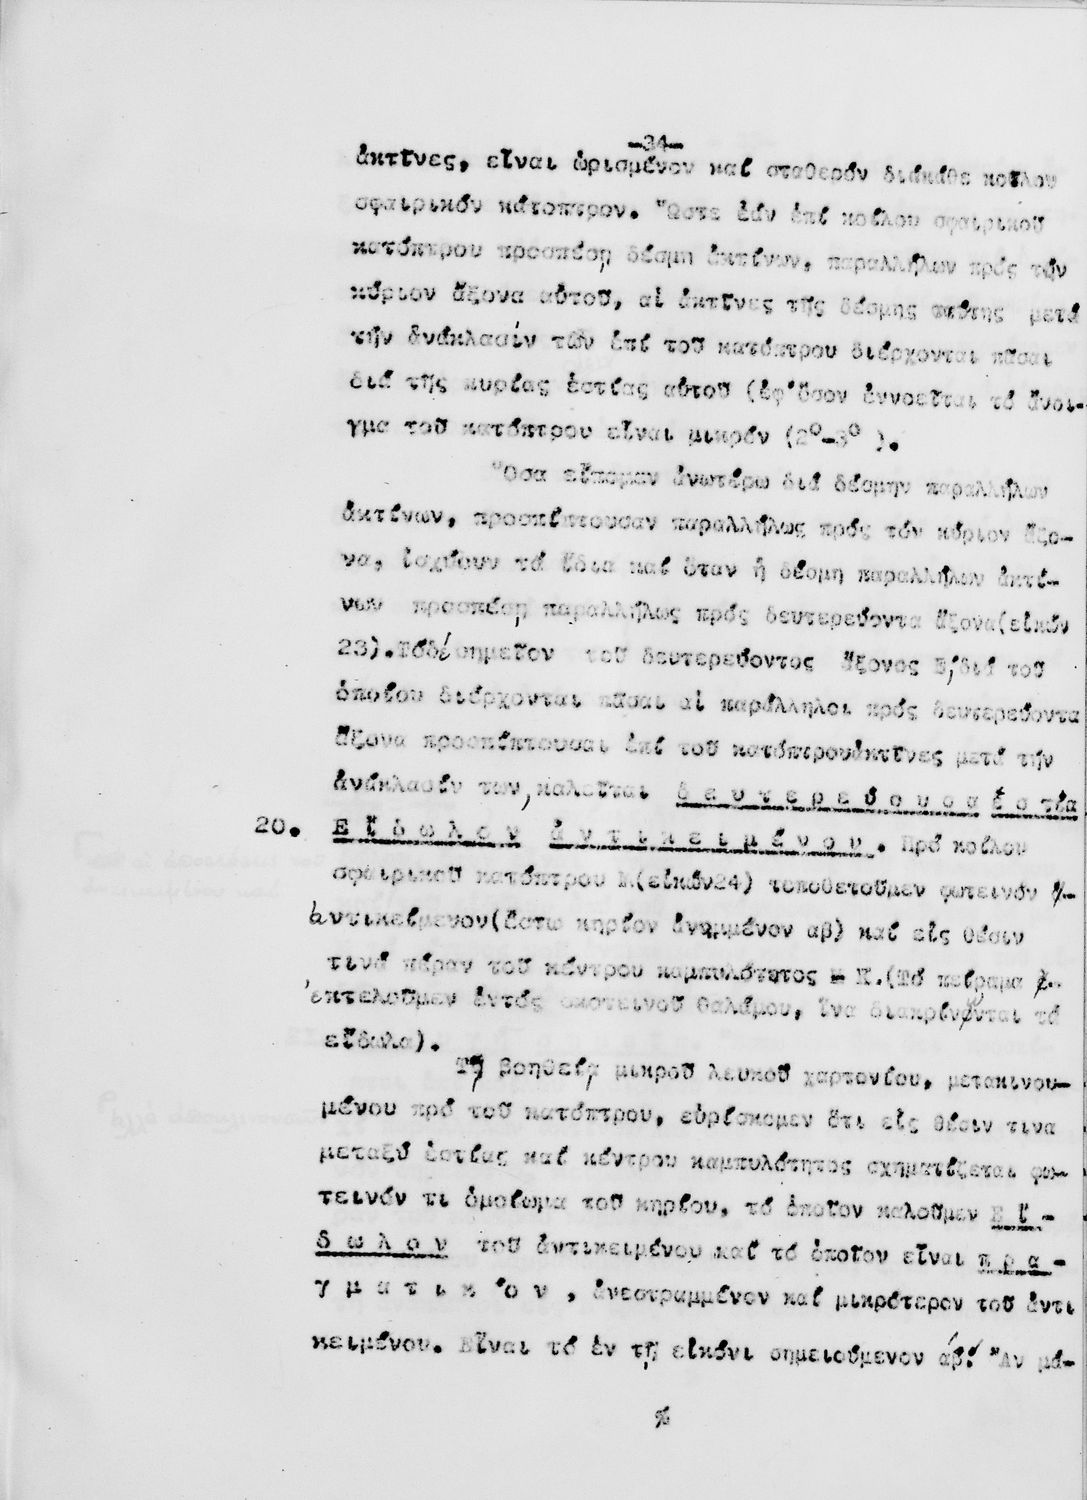 -34-
ἀκτῖνες, εἶναι ὡρισμένον καί σταθερόν διάκάθε κοῖλον
σφαιρικόν κάτοπτρον. Ὥστε ἐάν ἐπί κοίλου σφαιρικοῦ
κατόπτρου προσπέσῃ δέσμη ἀκτίνων, παραλλήλων πρός τόν
κύριον ἄξονα αὐτοῦ, αἱ ἀκτῖνες τῆς δέσμης ταύτης μετά
τήν ἀνάκλασίν των ἐπί τοῦ κατόπτρου διέρχονται πᾶσαι
διά τῆς κυρίας ἑστίας αὐτοῦ (ἐφ'ὅσον ἐννοεῖται τό ἄνοι-
γμα τοῦ κατόπτρου εἶναι μικρόν (2º-3º ).
Ὅσα εἴπομεν ἀνωτέρω διά δέσμην παραλλήλων
ἀκτίνων, προσπίπτουσαν παραλλήλως πρός τόν κύριον ἄξο-
να, ἰσχύουν τά ἴδια καί ὅταν ἡ δέσμη παραλλήλων ἀκτί-
νων προσπέσῃ παραλλήλως πρός δευτερεύοντα ἄξονα(εἰκών
23).Τόδέ σημεῖον τοῦ δευτερεύοντος ἄξονος Ε,διά τοῦ
ὁποίου διέρχονται πᾶσαι αἱ παράλληλοι πρός δευτερεύοντα
ἄξονα προσπίπτουσαι ἐπί τοῦ κατόπτρουἀκτῖνες μετά τήν
ἀνάκλασίν των,καλεῖται δ ε υ τ ε ρ ε ύ ο υ σ α ἑ σ τία
20. Ε ἴ δ ω λ ο ν ἀ ν τ ι κ ε ι μ έ ν ο υ . Πρό κοίλου
σφαιρικοῦ κατόπτρου Κ(εἰκών24) τοποθετοῦμεν φωτεινόν
ἀντικείμενον(ἔστω κηρίον ἀναμμένον αβ) καί εἰς θέσιν
τινά πέραν τοῦ κέντρου καμπυλότητος - Κ.(Τό πείραμα
ἐκτελοῦμεν ἐντός σκοτεινοῦ θαλάμου, ἵνα διακρίνωνται τά
εἴδωλα).
Τῇ βοηθείᾳ μικροῦ λευκοῦ χαρτονίου, μετακινου-
μένου πρό τοῦ κατόπτρου, εὑρίσκομεν ὅτι εἰς θέσιν τινα
μεταξύ ἑστίας καί κέντρου καμπυλότητος σχηματίζεται φω-
τεινόν τι ὁμοίωμα τοῦ κηρίου, τό ὁποῖον καλοῦμεν Ε ἴ -
δ ω λ ο ν τοῦ ἀντικειμένου καί τό ὁποῖον εἶναι π ρ α -
γ μ α τ ι κ ό ν , ἀνεστραμμένον καί μικρότερον τοῦ ἀντι
κειμένου. Εἶναι τό ἐν τῇ εἰκόνι σημειούμενον α΄β΄. Ἄν μά-
%